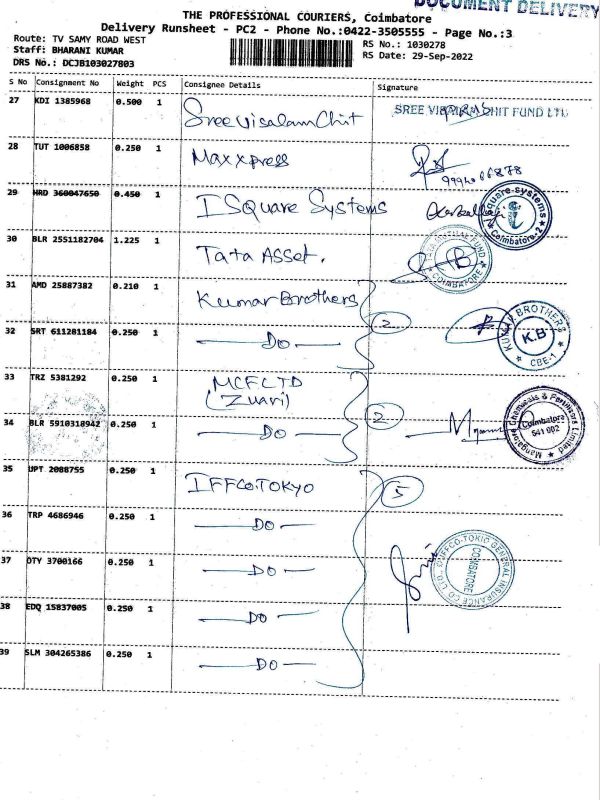 DOCUMENT DELIVERY
THE PROFESSIONAL COURIERS, Coimbatore
Delivery Runsheet - PC2 - Phone No.:0422-3505555 - Page No.:3
Route: TV SAMY ROAD WEST RS No.: 1030278
Staff: BHARANI KUMAR RS Date: 29-Sep-2022
DRS No.: DCJB103027803
S No Consignment No Weight PCS Consignee Details Signature
27 KDI 1385968 0.500 1 Sree Visalam Chit SREE VISALAM CHIT FUND LTD
28 TUT 1006858 0.250 1 Maxxpress
29 HRD 360047650 0.450 1 ISquare Systems square-systems Coimbatore-2
30 BLR 2551182704 1.225 1 Tata Asset. TATA MUTUAL FUND COIMBATORE
31 AMD 25887382 0.210 1 Kumar Brothers 2 KUMAR BROTHERS K.B CBE-1
32 SRT 611281184 0.250 1 Do
33 TRZ 5381292 0.250 1 MCFLTD
(Zuari) 2 Mangalore Chemicals & Fertilizers Limited Coimbatore 641 002
34 BLR 5910318942 0.250 1 Do
35 UPT 2088755 0.250 1 IFFCO TOKYO 5
36 TRP 4686946 0.250 1 Do
37 OTY 3700166 0.250 1 Do IFFCO-TOKIO GENERAL INSURANCE CO. LTD. COIMBATORE
38 EDQ 15837005 0.250 1 Do
39 SLM 304265386 0.250 1 Do